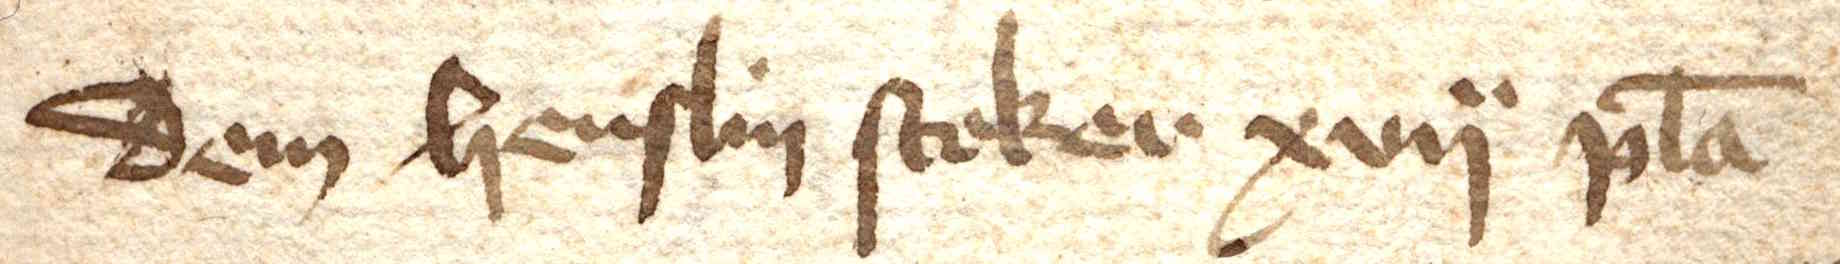 Dem henslin steker xvii pla